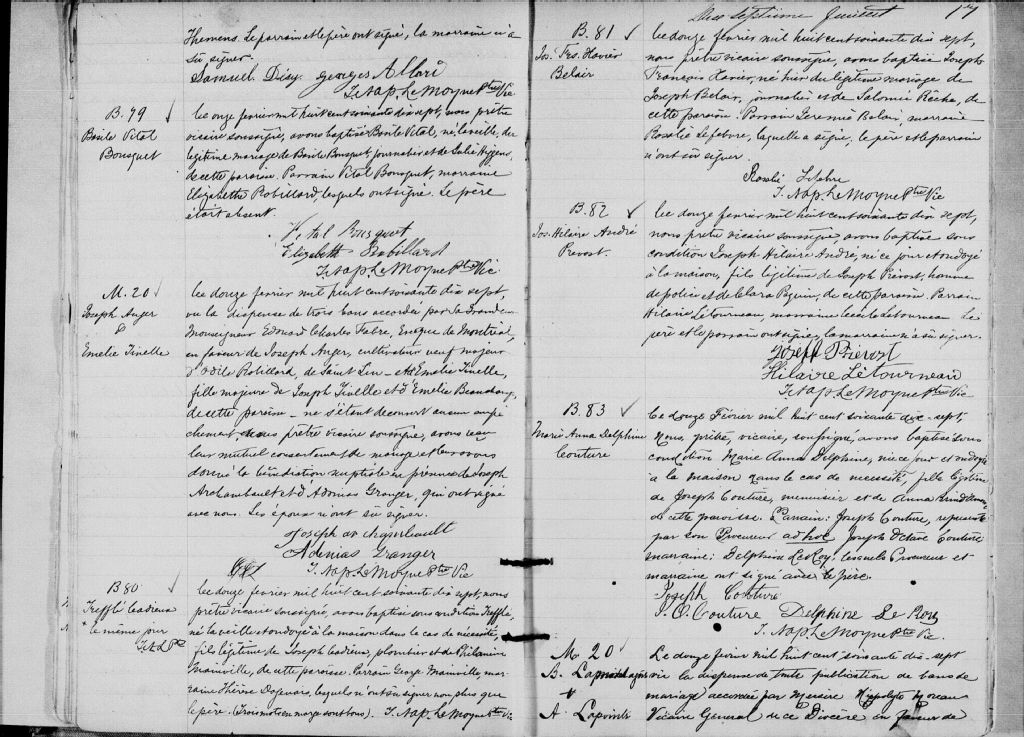 Hemens. Le parrain et le père ont signé, la marraine n'a
su signer.
Samuel Désy Georges Allard
J. Nap. LeMoyne Ptre Vic
B. 79
Basile Vital
Bousquet
Le onze fevrier mil huit cent soixante dix sept, nous prêtre
vicaire soussigné, avons baptisé Basile Vital, né la veille, du
légitime mariage de Basile Bousquet, journalier et de Julie
de cette paroisse. Parrain Vital Bousquet, marraine
Elizabeth Robillard, lesquels ont signé. Le père
était absent.
Vital Bousquet
Elizabeth Robillard
J. Nap. LeMoyne Ptre Vic
M. 20
Joseph Auger
&
Emelie Tinelle
Le douze fevrier mil huit cent soixante dix sept,
vu la dispense de trois bans accordée par la Grandeur
Monseigneur Edouard Charles Fabre, Eveque de Montréal,
en faveur de Joseph Auger, cultivateur veuf majeur
d'Odile Robillard, de Saint Lin et Emelie Tinelle,
fille majeure de Joseph Tinelle et d'Emelie Beauchamp,
de cette paroisse ne s'étant decouvert aucun empê
chement nous prêtre vicaire soussigné, avons reçu
leur mutuel consentement de mariage et leur avons
donné la bénédiction nuptiale en présence de Joseph
Archambault et d'Adonias Granger, qui ont signé
avec nous. Les époux n'ont su signer.
Joseph archambault
Adonias Granger
J. Nap. LeMoyne Ptre Vic
B 80
Trefflé Cadieux
* le même jour
Le douze fevrier mil huit cent soixante dix sept, nous
prêtre vicaire soussigné, avons baptisé sous condition Trefflé,
né la veille et ondoyé à la maison dans le cas de nécessité,
fils légitime de Joseph Cadieux, plombier et de Philomène
Mainville, de cette paroisse. Parrain George Mainville mar-
raine lesquels n'ont su signer non plus que
le père. (Trois mots en marge sont bons). J. Nap. LeMoyne Ptre Vic
Dix Septieme feuillet 17
B. 81
Jos. Frs. Xavier
Belair
Le douze fevrier mil huit cent soixante dix sept,
nous prêtre vicaire soussigné, avons baptisé Joseph
François Xavier, né hier du légitime mariage de
Joseph Belair, journalier et de Salomée de
cette paroisse. Parrain Jeremie Belair, marraine
Rosalie Lefebvre, laquelle a signé, le père et le parrain
n'ont su signer.
Rosalie Lefebre
J. Nap. LeMoyne Ptre Vic
B. 82
Jos. Hilaire André
Prevost.
Le douze fevrier mil huit cent soixante dix sept,
nous prêtre vicaire soussigné, avons baptisé sous
condition Joseph Hilaire André, né ce jour et ondoyé
à la maison, fils légitime de Joseph Prévost, homme
de police et de Clara de cette paroisse. Parrain
Hilaire Létourneau, marraine Létourneau Le
père et le parrain ont signé, la marraine n'a su signer.
Joseph Prévost
Hilaire Létourneau
J. Nap. LeMoyne Ptre Vic
B. 83
Marie Anna Delphine
Couture
Le douze Février mil huit cent soixante dix-sept,
Nous, prêtre, vicaire, soussigné, avons baptisé sous
condition Marie Anna Delphine, née ce jour et ondoyée
à la maison dans le cas de nécessité, fille légitime
de Joseph Couture, menuisier et de Anna
de cette paroisse. Parrain: Joseph Couture, représenté
par son Procureur ad hoc Joseph Octave Couture
marraine; Delphine LeRoy, lesquels Procureur et
marraine ont signé avec le père.
Joseph Couture
J. O. Couture Delphine Le Roy
J. Nap. LeMoyne Ptre Vic.
M. 20
B.
+
A. Lapointe
Le douze fevrier mil huit cent soixante dix-sept
vu la dispense de toute publication de bans de
mariage accordée par Messire Hyppolyte Moreau
Vicaire General de ce Diocèse en faveur de